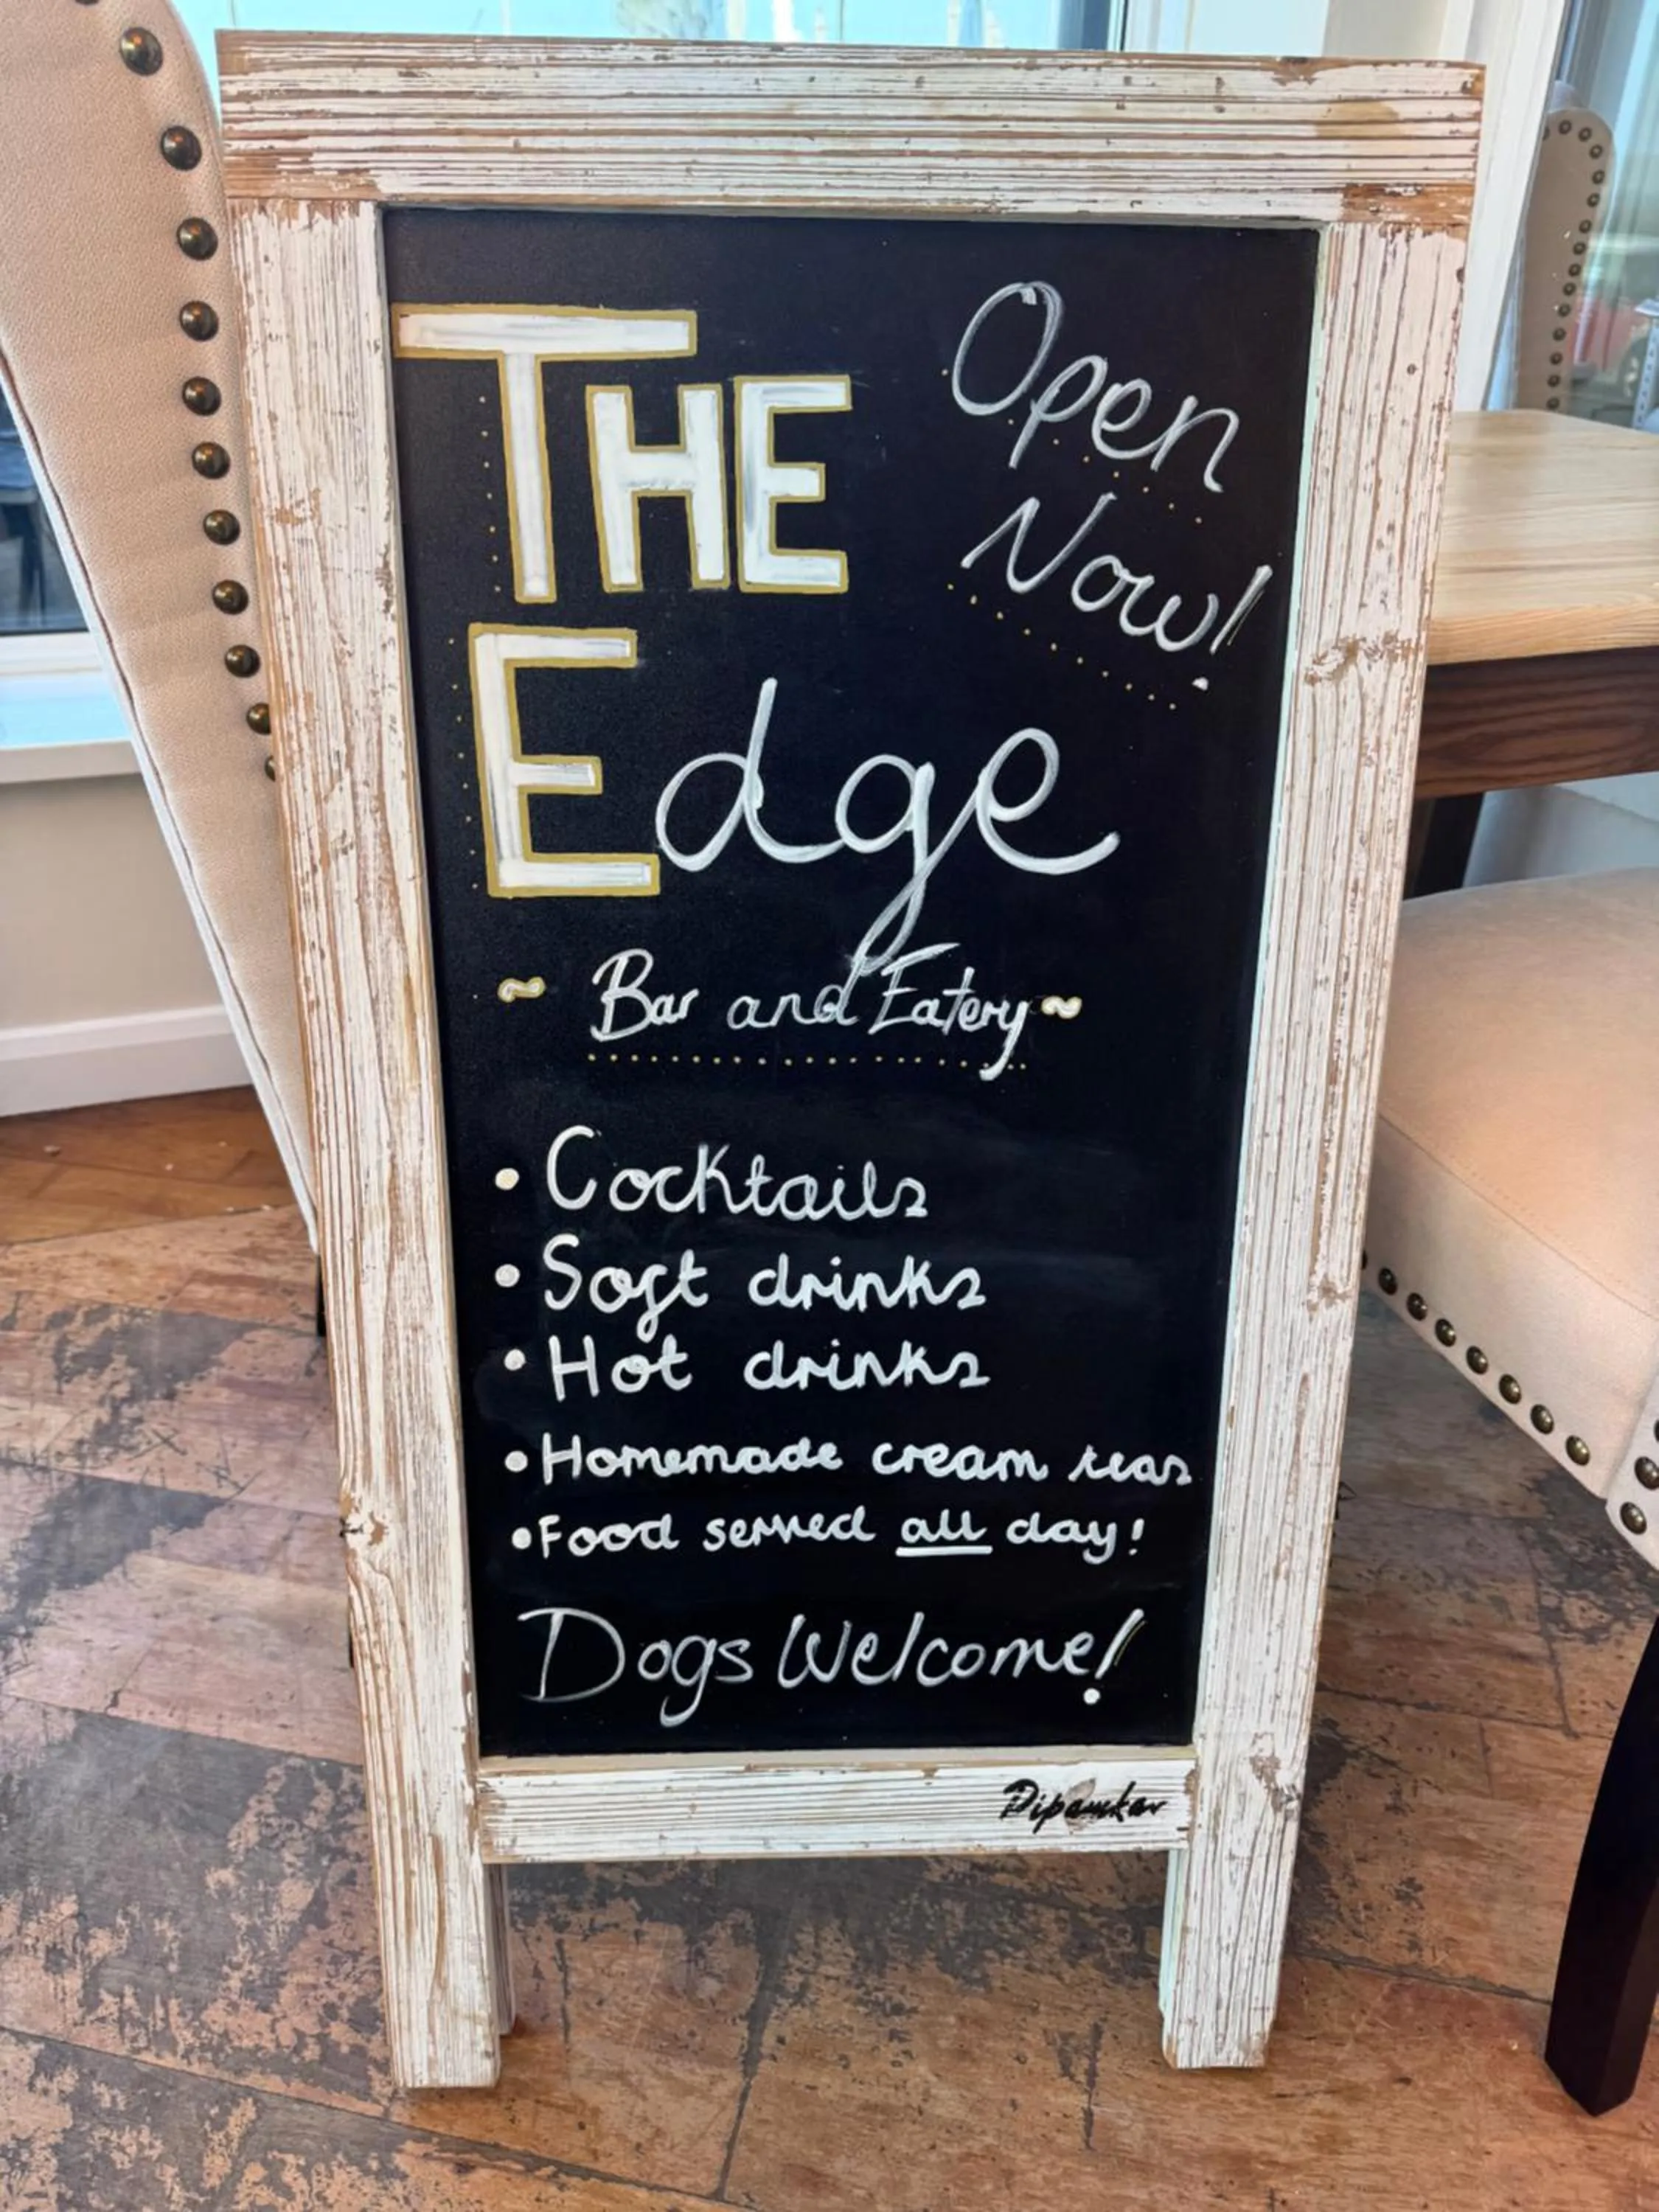 THE
Open
Now!
Edge
~ Bar and Eatery ~
• Cocktails
• Soft drinks
• Hot drinks
• Homemade cream teas
• Food served all day!
Dogs Welcome!
Dipankar